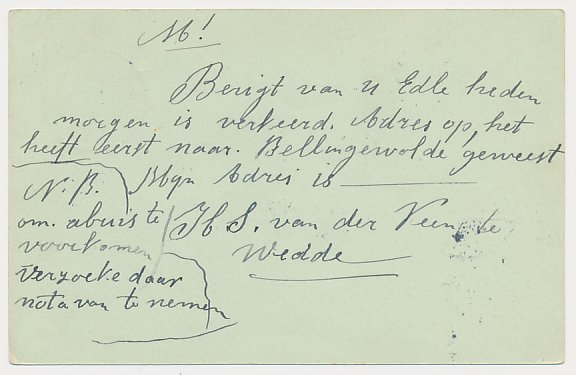 M!
Berigt van U Edle heden
morgen is verkeerd. Adres op, het
heeft eerst naar. Bellingewolde geweest
Mijn Adres is
H S. van der Veen te
Wedde
N.B.
om. abuis te
voorkomen
verzoeke daar
nota van te nemen